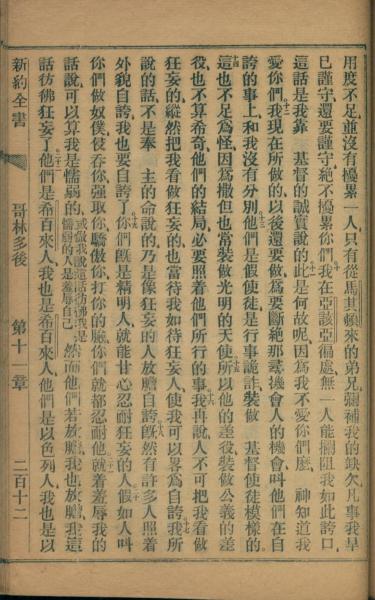 用度不足、並沒有擾累一人、只有從馬其頓來的弟兄、彌補我的缺欠、凡事我早
已謹守、還要謹守、絕不擾累你們、我在亞該亞徧處、無一人能攔阻我如此誇口、
這話是我靠 基督的誠實說的、十一此是何故呢、因爲我不愛你們麼、 神知道我
愛你們、十二我現在所做的、以後還要做、爲要斷絕那尋機會人的機會、叫他們在自
誇的事上、和我沒有分別、十三他們是假使徒、是行事詭詐、裝做 基督使徒模樣的、
十四這也不足爲怪、因爲撒但也當裝做光明的天使、十五所以他的差役、裝做公義的差
役、也不算希奇、他們的結局、必要照着他們所行的事、十六我再說、人不可把我看做
狂妄的、縱然把我看做狂妄的、也當待我如待狂妄人、使我可以畧爲自誇、十七我所
說的話、不是奉 主的命說的、乃是像狂妄的人放膽自誇、十八旣然有許多人照着
外貌自誇、我也要自誇了、十九你們旣是精明人、就能甘心忍耐狂妄的人、二十假如人叫
你們做奴僕、侵吞你、強取你、驕傲你、打你的臉、你們就都忍耐他、就着羞辱我的
話說、可以算我是懦弱的、然而他們若放膽、我也放膽、我這
話彷彿狂妄了、他們是希百來人、我也是希百來人、他們是以色列人、我也是以
新約全書 哥林多後 第十一章 二百十二